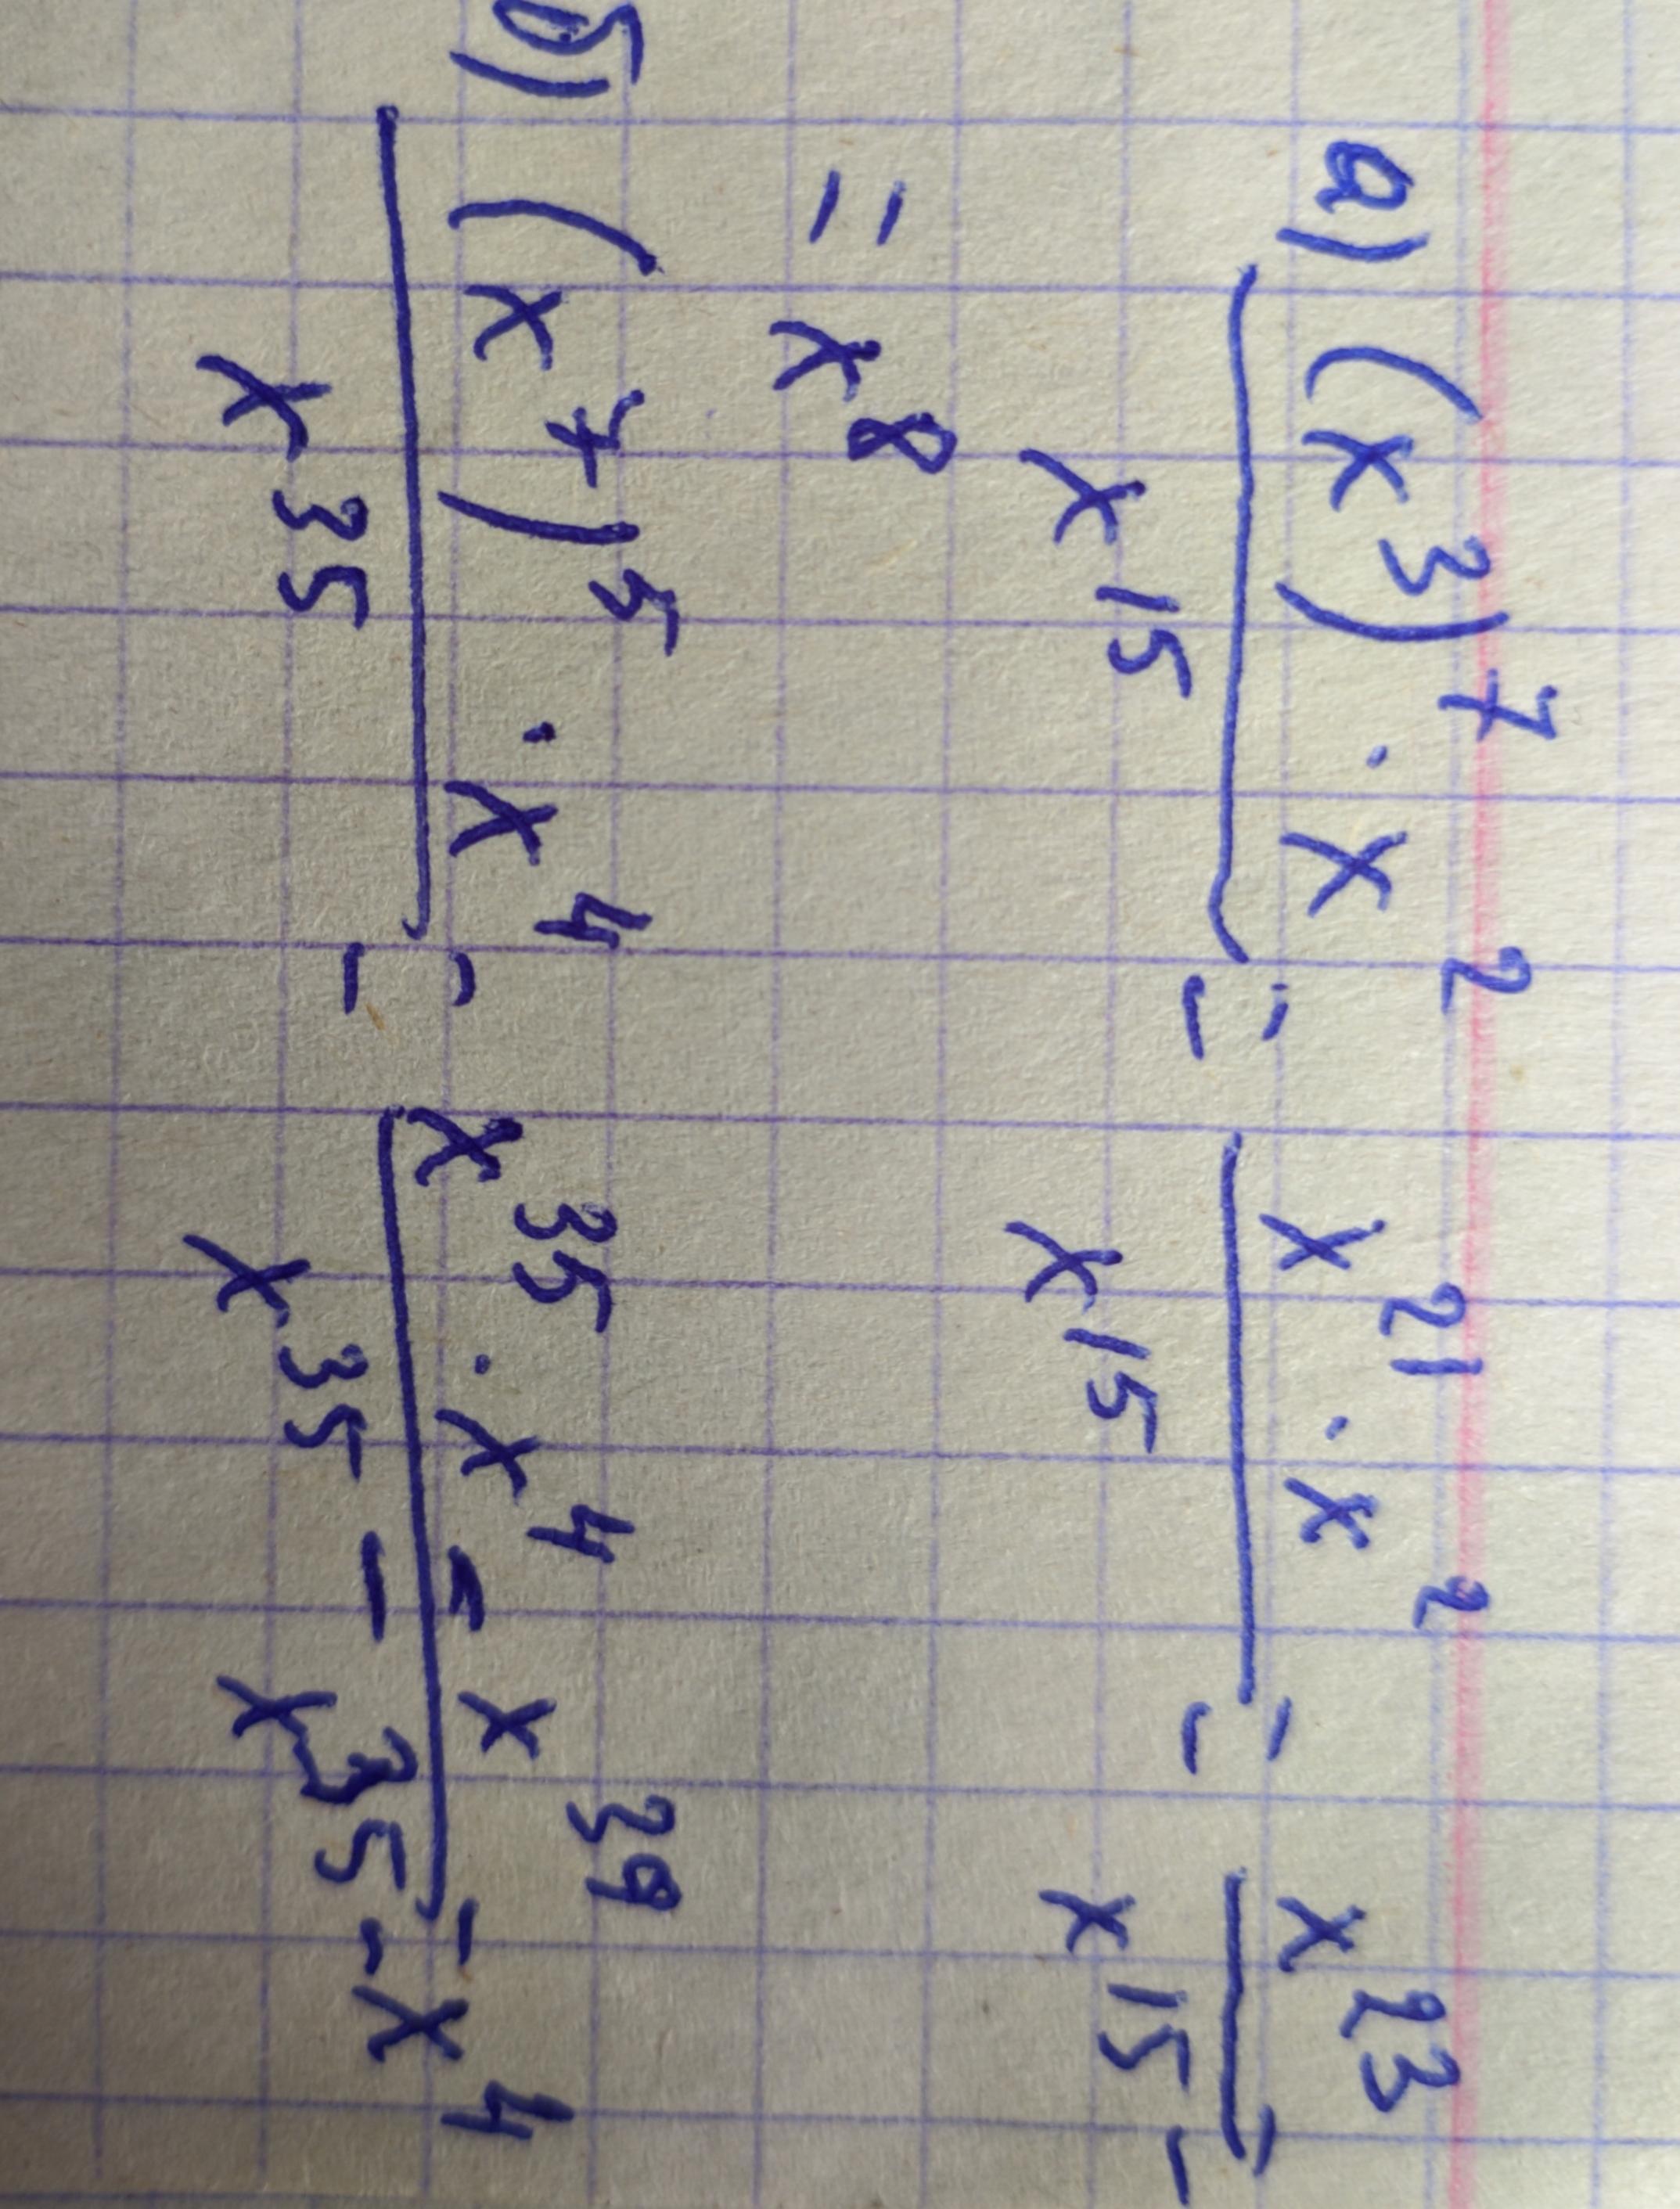 а) (x³)⁷ · x² / x¹⁵ = x²¹ · x² / x¹⁵ = x²³ / x¹⁵ =
= x⁸
б) (x⁷)⁵ · x⁴ / x³⁵ = x³⁵ · x⁴ / x³⁵ = x³⁹ / x³⁵ = x⁴